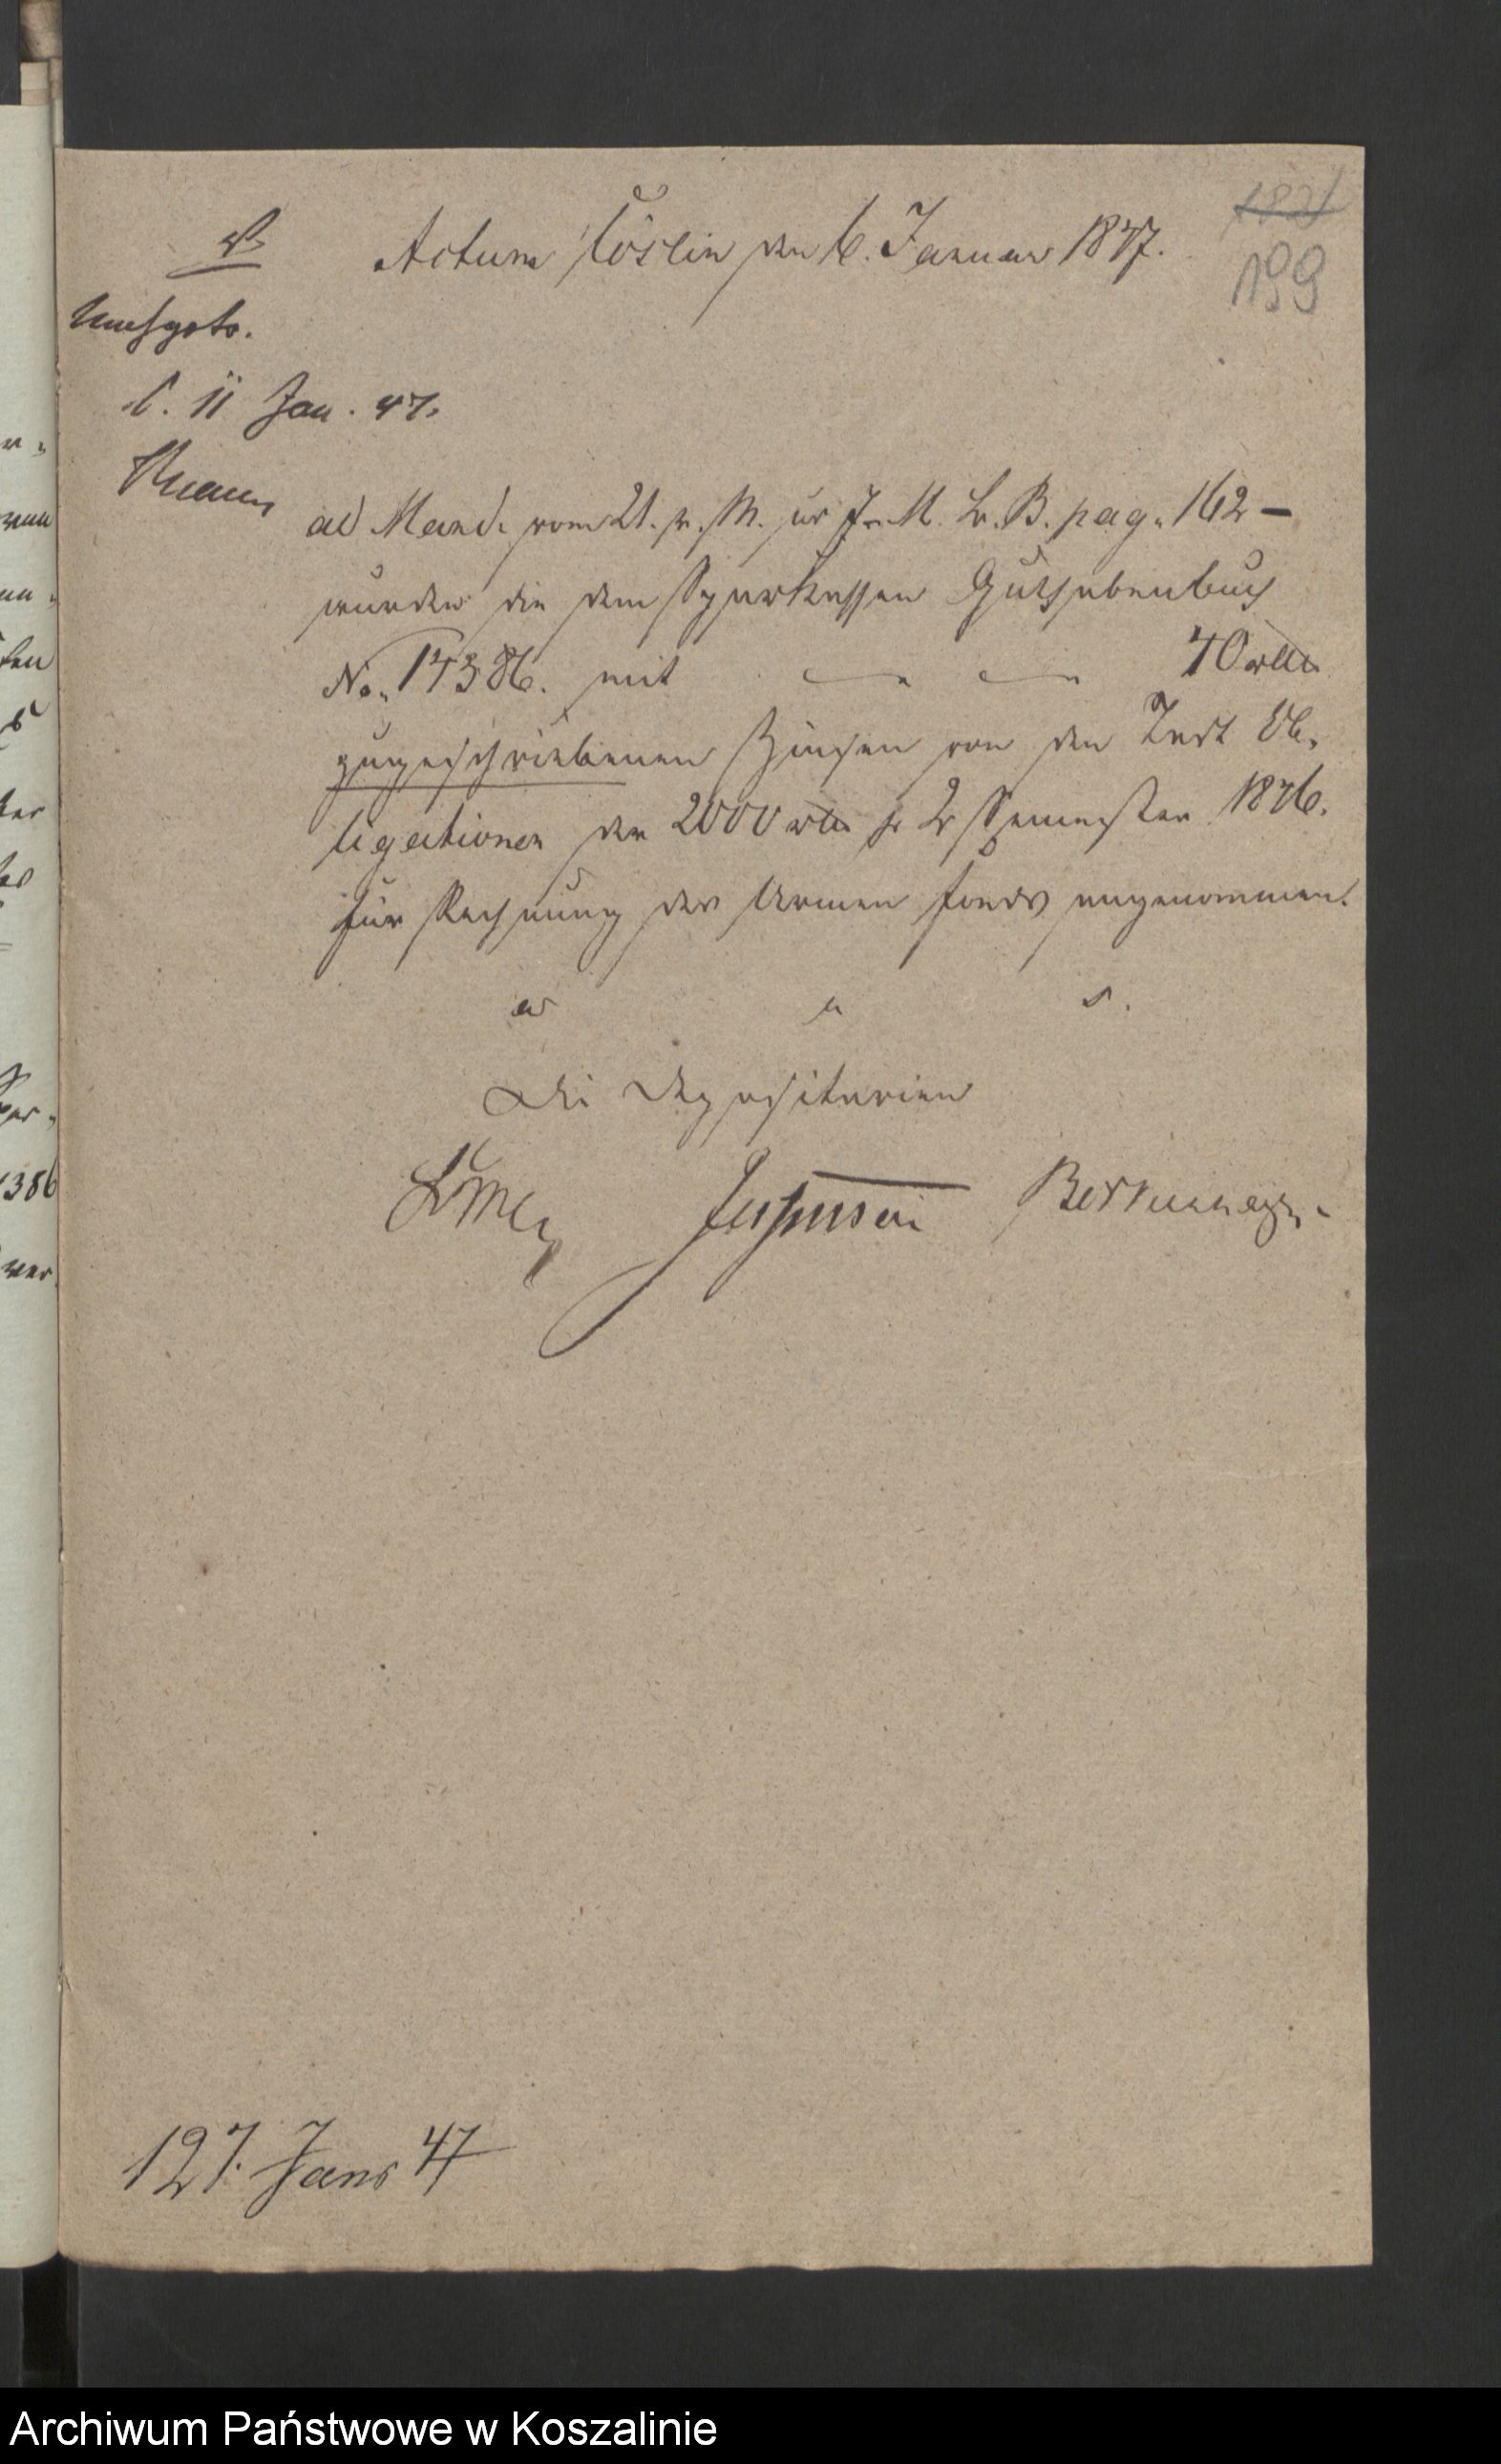 199
Actum Cöslin den 6. Januar 1847.
Nachgetr.
C. 11 Jan. 47.
ad Mand. vom 21. v. M. zur J. M. Lr. B. pag. 162 —
wurden die dem Sparkassen Guthabenbuch
No. 14386. mit 40 rtlr
zugeschriebenen Zinsen von den Stadt Ob-
ligationen der 2000 rtlr pr 2r Semester 1846.
für Rechnung des Armen Fonds angenommen.
a u s.
Die Depositarien
127. Janr 47
386
Archiwum Państwowe w Koszalinie